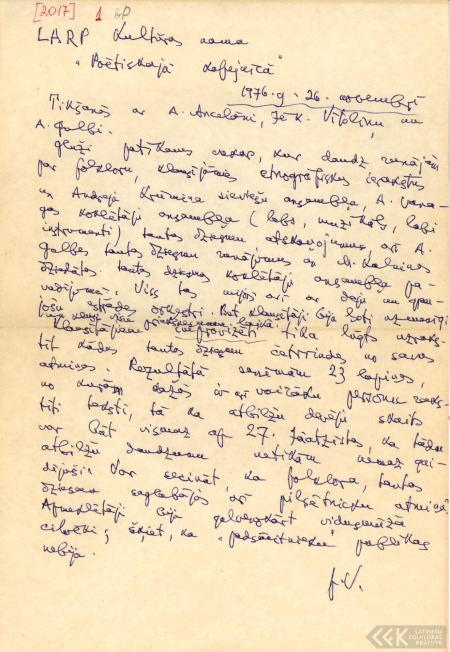 [2017] 1
LARP Kultūras nama
"Poētiskajā kafejnīcā"
1976. g. 26. novembrī
Tikšanās ar A. Ancelāni, J. K. Vītoliņu un
A. Galbi.
Gluži patīkams vakars, kur daudz runājām
par folkloru, klausījāmies etnogrāfiskus ierakstus
un Andreja Krūmiņa sieviešu ansambļa, A. Vana-
gas koklētāju ansambļa (labs, muzikāls, labi
instrumenti) tautas dziesmu atskaņojumus, arī A.
Galbes tautas dziesmu runājumus un A. Kalniņas
dziedātas tautas dziesmas koklētāju ansambļa pa-
vadījumā. Viss tas mijās arī ar deju un
estrādes orķestri. Bet klausītāji bija ļoti uzmanīgi
visu priekšnesumu laikā.
Klausītājiem improvizēti tika lūgts uzraks-
tīt kādas tautas dziesmu četrrindes no savas
atmiņas. Rezultātā saņēmām 23 lapiņas,
no kurām dažās ir arī vairāku personu raks-
tīti teksti, tā ka atbilžu devēju skaits
var būt vismaz ap 27. Jāatzīstas, ka tādu
atbilžu daudzumu netikām nemaz gai-
dījuši. Var secināt, ka folklora, tautas
dziesma saglabājas arī pilsētnieku atmiņā.
Apmeklētāji bija galvenokārt vidusmūža
cilvēki; šķiet, ka "padsmitnieku" publikas
nebija.
J.V.
LATVIEŠU
FOLKLORAS
KRĀTUVE